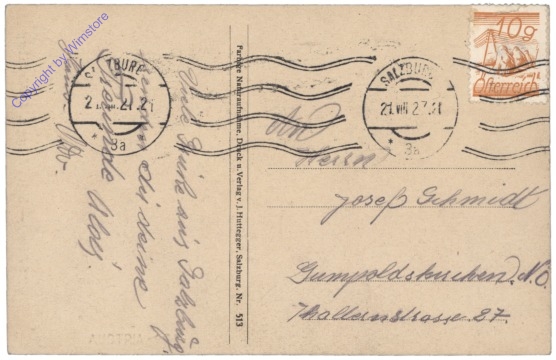 Copyright by Wimstore
SALZBURG
3a
Viele Grüße aus Salzburg
sendet dir deine
Freunde Aloisi
Farbige Naturaufnahme, Druck u. Verlag v. J. Huttegger, Salzburg. Nr. 513
10g
Österreich
SALZBURG
21.VIII.27.21
3a
An
Herrn
Josef Schmidt
Gumpoldskirchen. N.Ö.
Thallernstrasse 27.